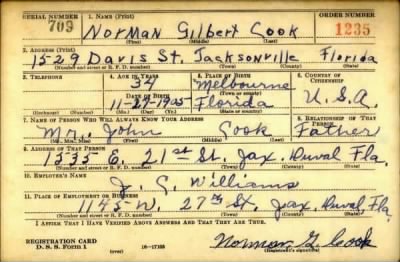 SERIAL NUMBER 1. NAME (Print) ORDER NUMBER
709 Norman Gilbert Cook 1235
(First) (Middle) (Last)
2. ADDRESS (Print)
1529 Davis St. Jacksonville Florida
(Number and street or R. F. D. number) (Town) (County) (State)
3. TELEPHONE 4. AGE IN YEARS 5. PLACE OF BIRTH 6. COUNTRY OF CITIZENSHIP
34 Melbourne
DATE OF BIRTH (Town or county)
11-27-1905 Florida U.S.A.
(Mo.) (Day) (Yr.) (State or country)
7. NAME OF PERSON WHO WILL ALWAYS KNOW YOUR ADDRESS 8. RELATIONSHIP OF THAT PERSON
Mr. John Cook Father
(Mr., Mrs., Miss) (First) (Middle) (Last)
9. ADDRESS OF THAT PERSON
1535 E. 21st St. Jax. Duval Fla.
(Number and street or R. F. D. number) (Town) (County) (State)
10. EMPLOYER'S NAME
J. G. Williams
11. PLACE OF EMPLOYMENT OR BUSINESS
1145 W. 27th St. Jax. Duval Fla.
(Number and street or R. F. D. number) (Town) (County) (State)
I AFFIRM THAT I HAVE VERIFIED ABOVE ANSWERS AND THAT THEY ARE TRUE.
REGISTRATION CARD
D. S. S. Form 1 (over) 16-17105 Norman G. Cook
(Registrant's signature)